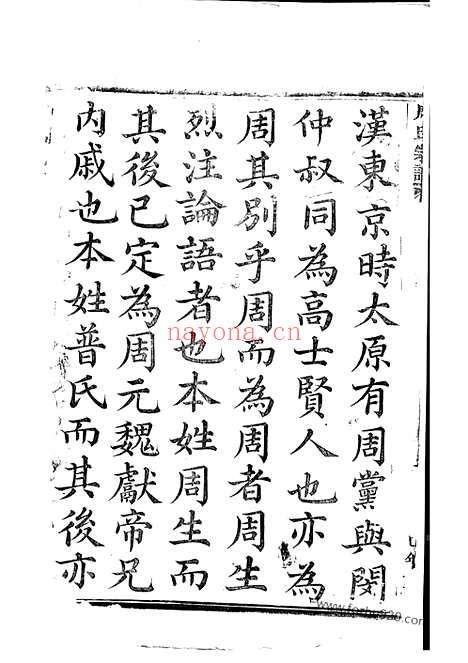 漢東京時太原有周黨與閔
仲叔同為高士賢人也亦為
周其別乎周而為周者周生
烈注論語者也本姓周生而
其後已定為周元魏獻帝兄
內戚也本姓普氏而其後亦
nayona.cn